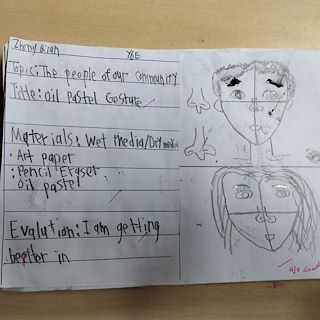 Zhong Qian Y6E
Topic: The people of our community
Title: oil pastel Gesture
Materials: Wet media/Dry media
· Art paper
· Pencil Eraser
oil pastel
Evalution: I am getting
better in